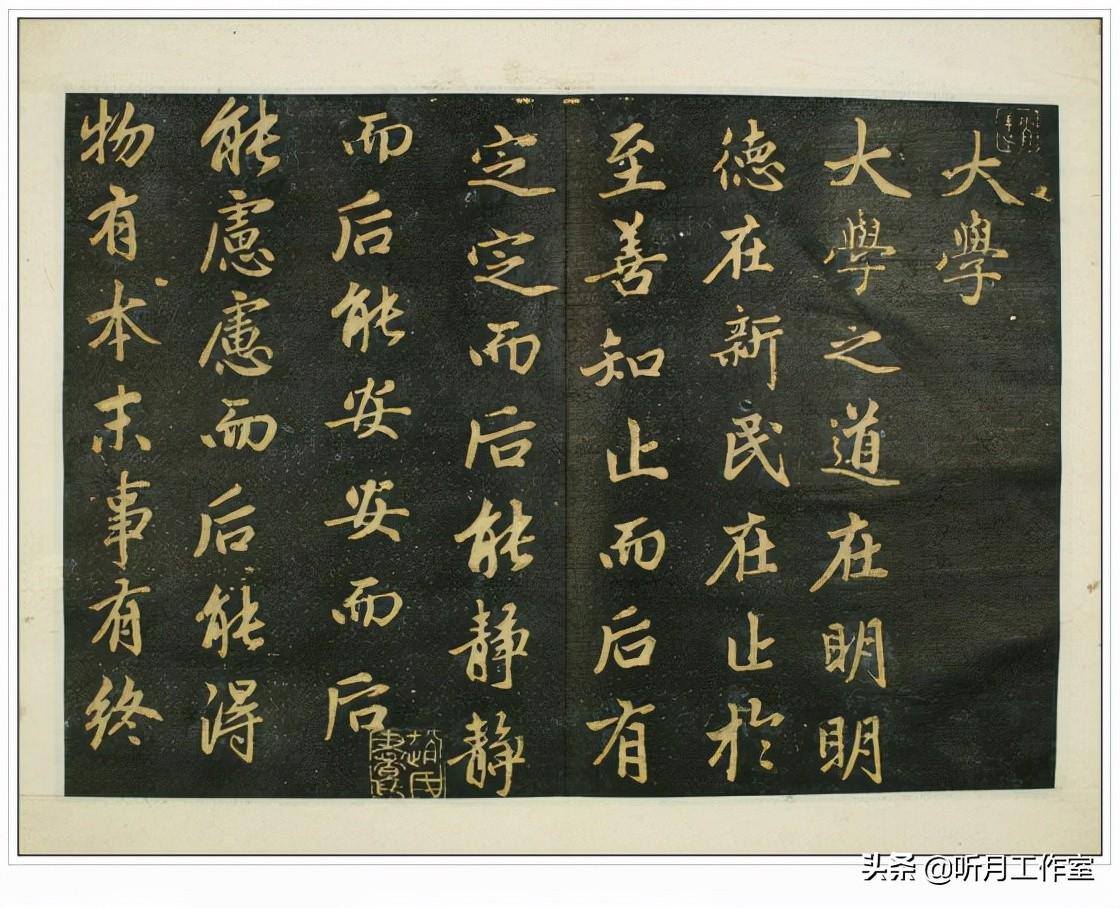 大學
大學之道在明明
德在新民在止於
至善知止而后有
定定而后能静静
而后能安安而后
能慮慮而后能得
物有本末事有終
頭条 @听月工作室